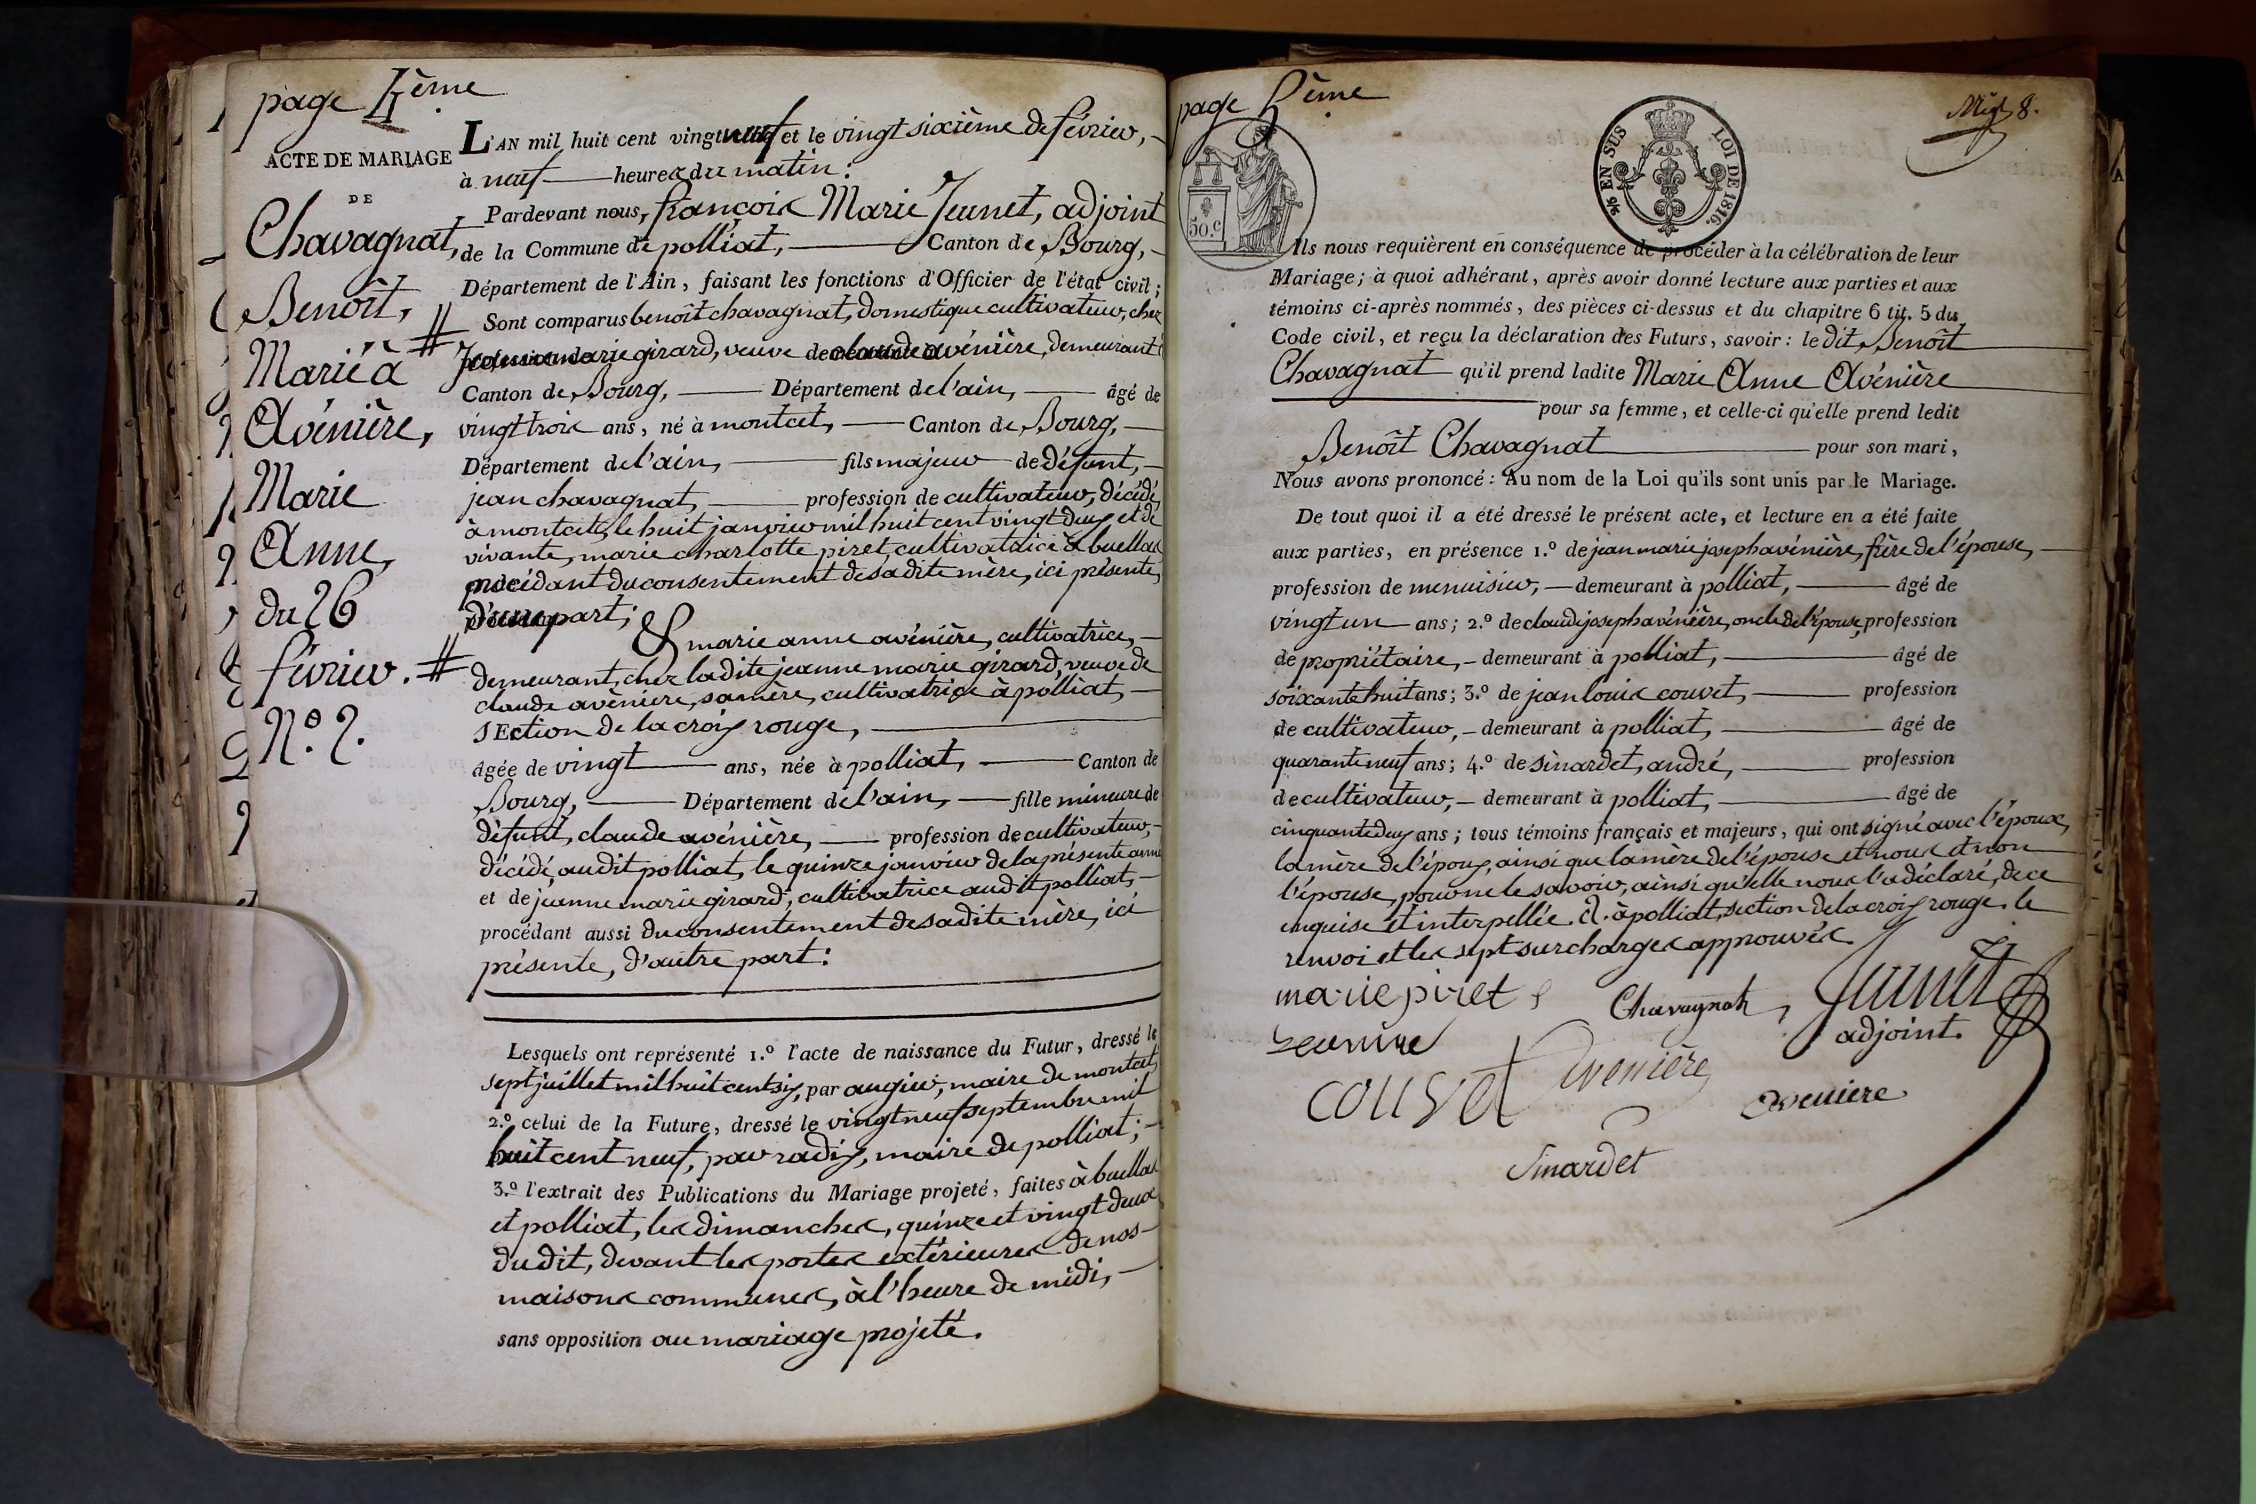 page 4ème
ACTE DE MARIAGE
DE
Chavagnat,
Benoît,
Marié à
Avénière,
Marie
Anne,
du 26
février. #
N.º 2.
L'AN mil huit cent vingt neuf et le vingt sixième de février,
à neuf heures du matin:
Pardevant nous, françois Marie Jeunet, adjoint
de la Commune de polliat, Canton de Bourg,
Département de l'Ain, faisant les fonctions d'Officier de l'état civil;
Sont comparus benoît chavagnat, domestique cultivateur, chez
# Jeanne marie girard, veuve de claude avénière, demeurant à
Canton de Bourg, Département de l'ain, âgé de
vingt trois ans, né à montcet, Canton de Bourg,
Département de l'ain, fils majeur de défunt,
jean chavagnat, profession de cultivateur, décédé
à montcet, le huit janvier mil huit cent vingt deux et de
vivante, marie charlotte piret, cultivatrice à buellas
procédant du consentement de sa dite mère, ici présente,
d'une part;
& marie anne avénière, cultivatrice,
demeurant, chez la dite jeanne marie girard, veuve de
claude avénière, sa mère, cultivatrice à polliat,
sEction de la croix rouge,
âgée de vingt ans, née à polliat, Canton de
Bourg, Département de l'ain, fille mineure de
défunt, claude avénière, profession de cultivateur,
décédé, audit polliat, le quinze janvier de la présente année
et de jeanne marie girard, cultivatrice audit polliat,
procédant aussi du consentement de sa dite mère, ici
présente, d'autre part:
Lesquels ont représenté 1.º l'acte de naissance du Futur, dressé le
sept juillet mil huit cent six, par augier, maire de montcet,
2.º celui de la Future, dressé le vingt neuf septembre mil
huit cent neuf, par radix, maire de polliat;
3.º l'extrait des Publications du Mariage projeté, faites à buellas
et polliat, les dimanches, quinze et vingt deux
du dit, devant les portes extérieures de nos
maisons communes, à l'heure de midi,
sans opposition au mariage projeté.
page 5ème
50.c
5/6 EN SUS
LOI DE 1816.
8.
Ils nous requièrent en conséquence de procéder à la célébration de leur
Mariage; à quoi adhérant, après avoir donné lecture aux parties et aux
témoins ci-après nommés, des pièces ci-dessus et du chapitre 6 tit. 5 du
Code civil, et reçu la déclaration des Futurs, savoir: le dit, Benoît
Chavagnat qu'il prend ladite Marie Anne Avénière
pour sa femme, et celle-ci qu'elle prend ledit
Benoît Chavagnat pour son mari,
Nous avons prononcé: Au nom de la Loi qu'ils sont unis par le Mariage.
De tout quoi il a été dressé le présent acte, et lecture en a été faite
aux parties, en présence 1.º de jean marie joseph avénière, frère de l'épouse,
profession de menuisier, demeurant à polliat, âgé de
vingt un ans; 2.º de claude joseph avénière, oncle de l'épouse, profession
de propriétaire, demeurant à polliat, âgé de
soixante huit ans; 3.º de jean louis couvet, profession
de cultivateur, demeurant à polliat, âgé de
quarante neuf ans; 4.º de sinardet, andré, profession
de cultivateur, demeurant à polliat, âgé de
cinquante deux ans; tous témoins français et majeurs, qui ont signé avec l'époux,
la mère de l'époux, ainsi que la mère de l'épouse et nous et non
l'épouse, pour ne le savoir, ainsi qu'elle nous l'a déclaré, de ce
enquise et interpellée. #. à polliat, section de la croix rouge. le
renvoi et les sept surcharges approuvés.
marie piret
Chavagnat,
Jeunet
adjoint.
couvet
avenière
avenière
Sinardet